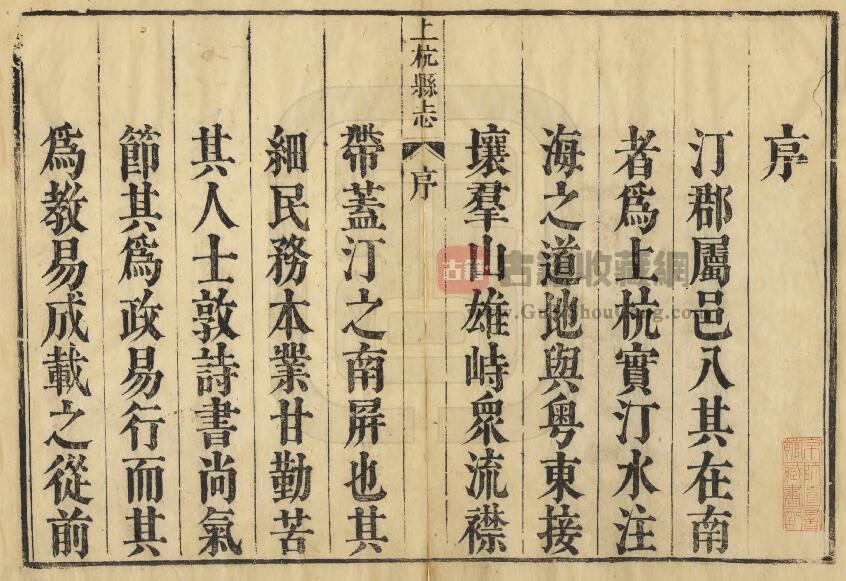 序
汀郡屬邑八其在南
者爲上杭實汀水注
海之道地與粵東接
壤羣山雄峙衆流襟
上杭縣志
序
帶蓋汀之南屏也其
細民務本業甘勤苦
其人士敦詩書尚氣
節其爲政易行而其
爲教易成載之從前
古籍
古籍收藏網